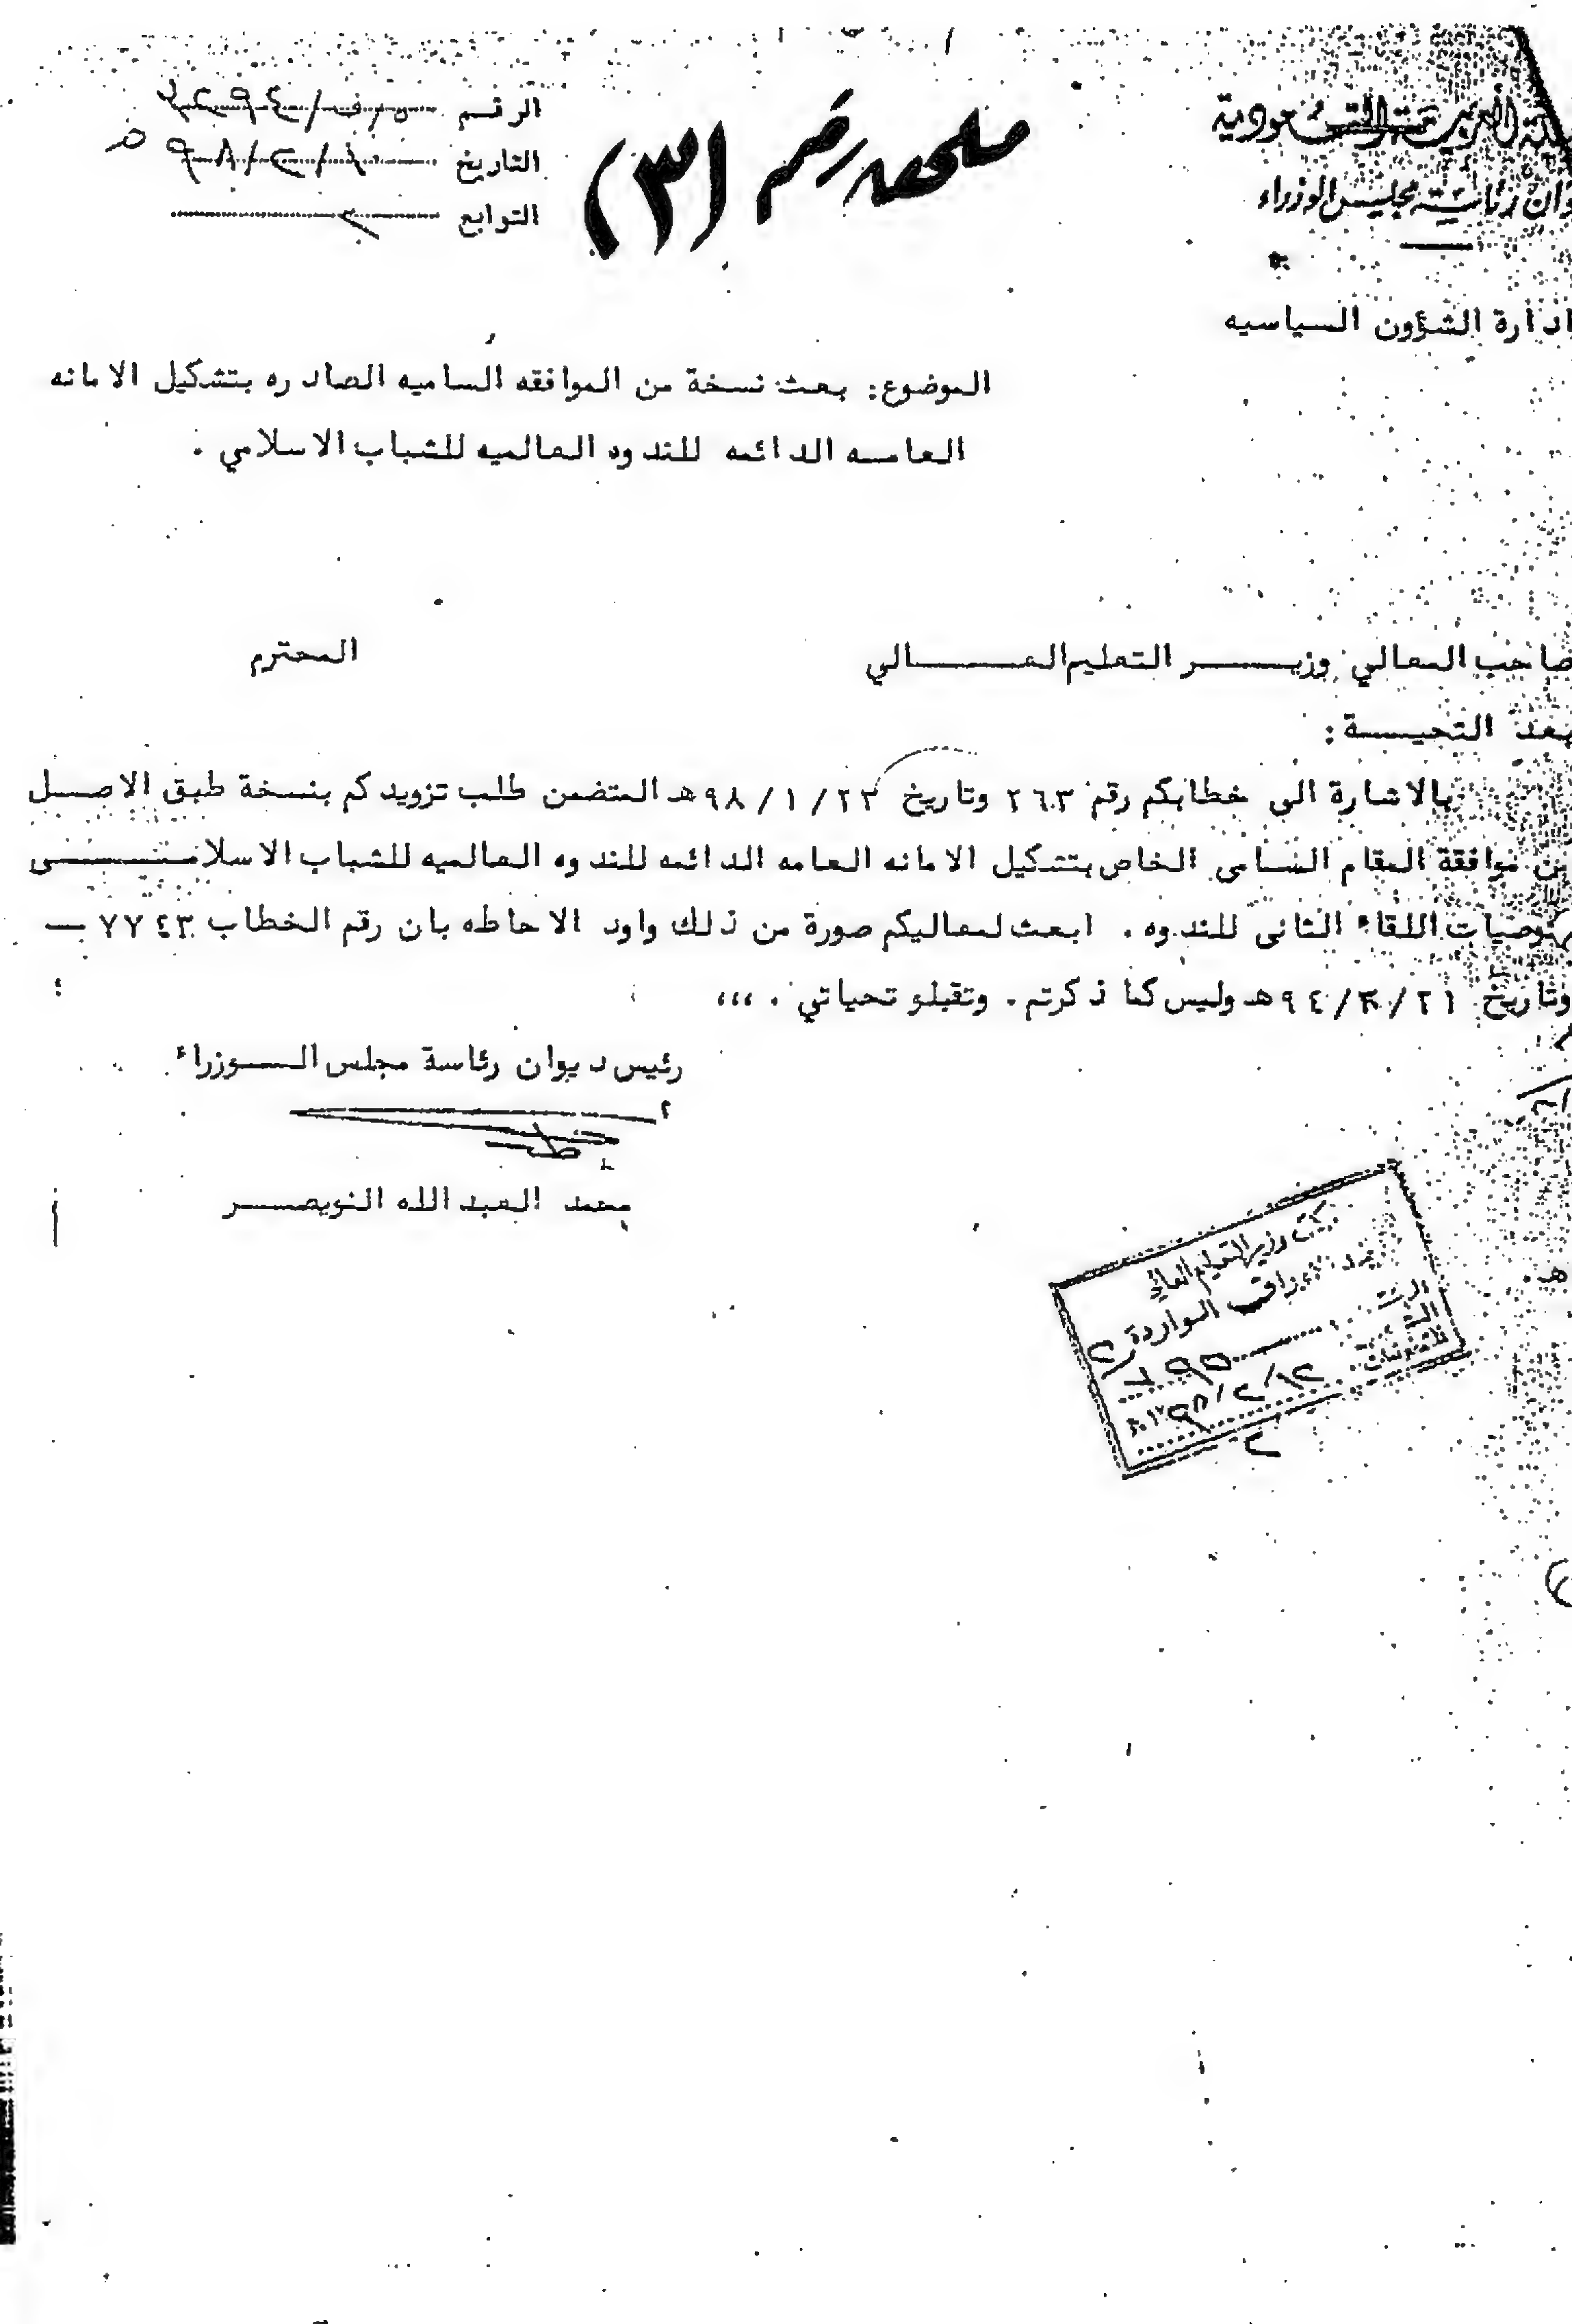 العربية السعودية
رئاسة مجلس الوزراء
ادارة الشؤون السياسيه
ملحق رقم (٣)
الرقم
التاريخ ٩٨/٢/١٠ هـ
التوابع ٢
الموضوع: بعث نسخة من الموافقه الساميه الصادره بتشكيل الامانه
العامــه الدائمه للندوه العالميه للشباب الاسلامي .
صاحب المعالي وزيــــر التعليم العـــــالي المحترم
بعد التحيــــة :
بالاشارة الى خطابكم رقم ٢٦٣ وتاريخ ٩٨/١/٢٣هـ المتضمن طلب تزويدكم بنسخة طبق الاصــل
من موافقة المقام السامى الخاص بتشكيل الامانه العامه الدائمه للندوه العالميه للشباب الاسلامــــى
بتوصيات اللقاء الثانى للندوه . ابعث لمعاليكم صورة من ذلك واود الاحاطه بان رقم الخطاب ٧٧٤٣ —
وتاريخ ٢١/ /٩٤هـ وليس كما ذكرتم . وتقبلو تحياتي . ،،،
رئيس ديوان رئاسة مجلس الـــوزراء
محمد العبدالله النويصــر
مكتب وزير التعليم العالي
الواردة
١٢/٢/١٣٩٨هـ
٢